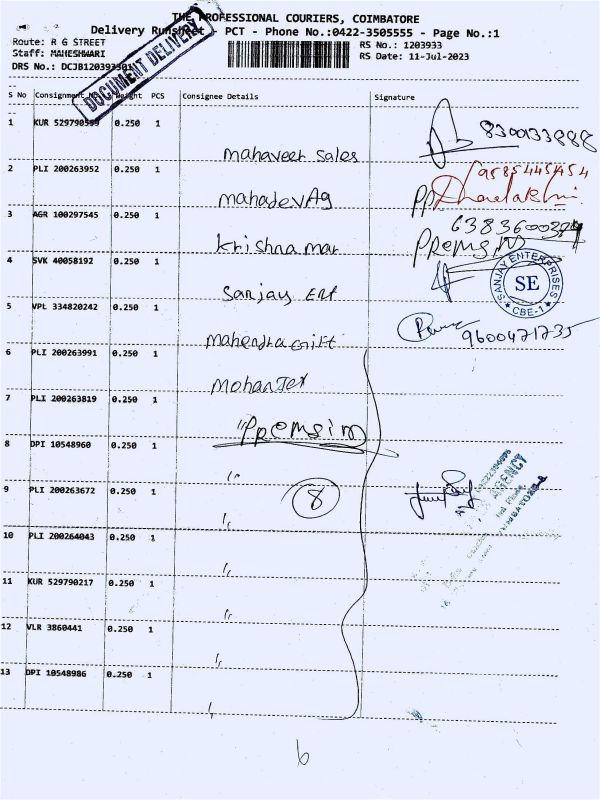 THE PROFESSIONAL COURIERS, COIMBATORE
Delivery Runsheet PCT - Phone No.:0422-3505555 - Page No.:1
Route: R G STREET
RS No.: 1203933
Staff: MAHESHWARI
RS Date: 11-Jul-2023
DRS No.: DCJB120393301
DOCUMENT DELIVERY
S No Consignment No Weight PCS Consignee Details Signature
1 KUR 529790599 0.250 1
8300133888
mahaveer sales
2 PLI 200263952 0.250 1
9585445454
mahadev Ag
pp
3 AGR 100297545 0.250 1
krishna mar
Premsin
4 SVK 40058192 0.250 1
Sanjay Ent
SANJAY ENTERPRISES
SE
CBE-1
5 VPL 334820242 0.250 1
mahendra Gift
9600471735
6 PLI 200263991 0.250 1
Mohan Tex
7 PLI 200263819 0.250 1
"Premsin
8 DPI 10548960 0.250 1
"
9 PLI 200263672 0.250 1
8
AGENCY
"
10 PLI 200264043 0.250 1
"
11 KUR 529790217 0.250 1
"
12 VLR 3860441 0.250 1
"
13 DPI 10548986 0.250 1
"
6